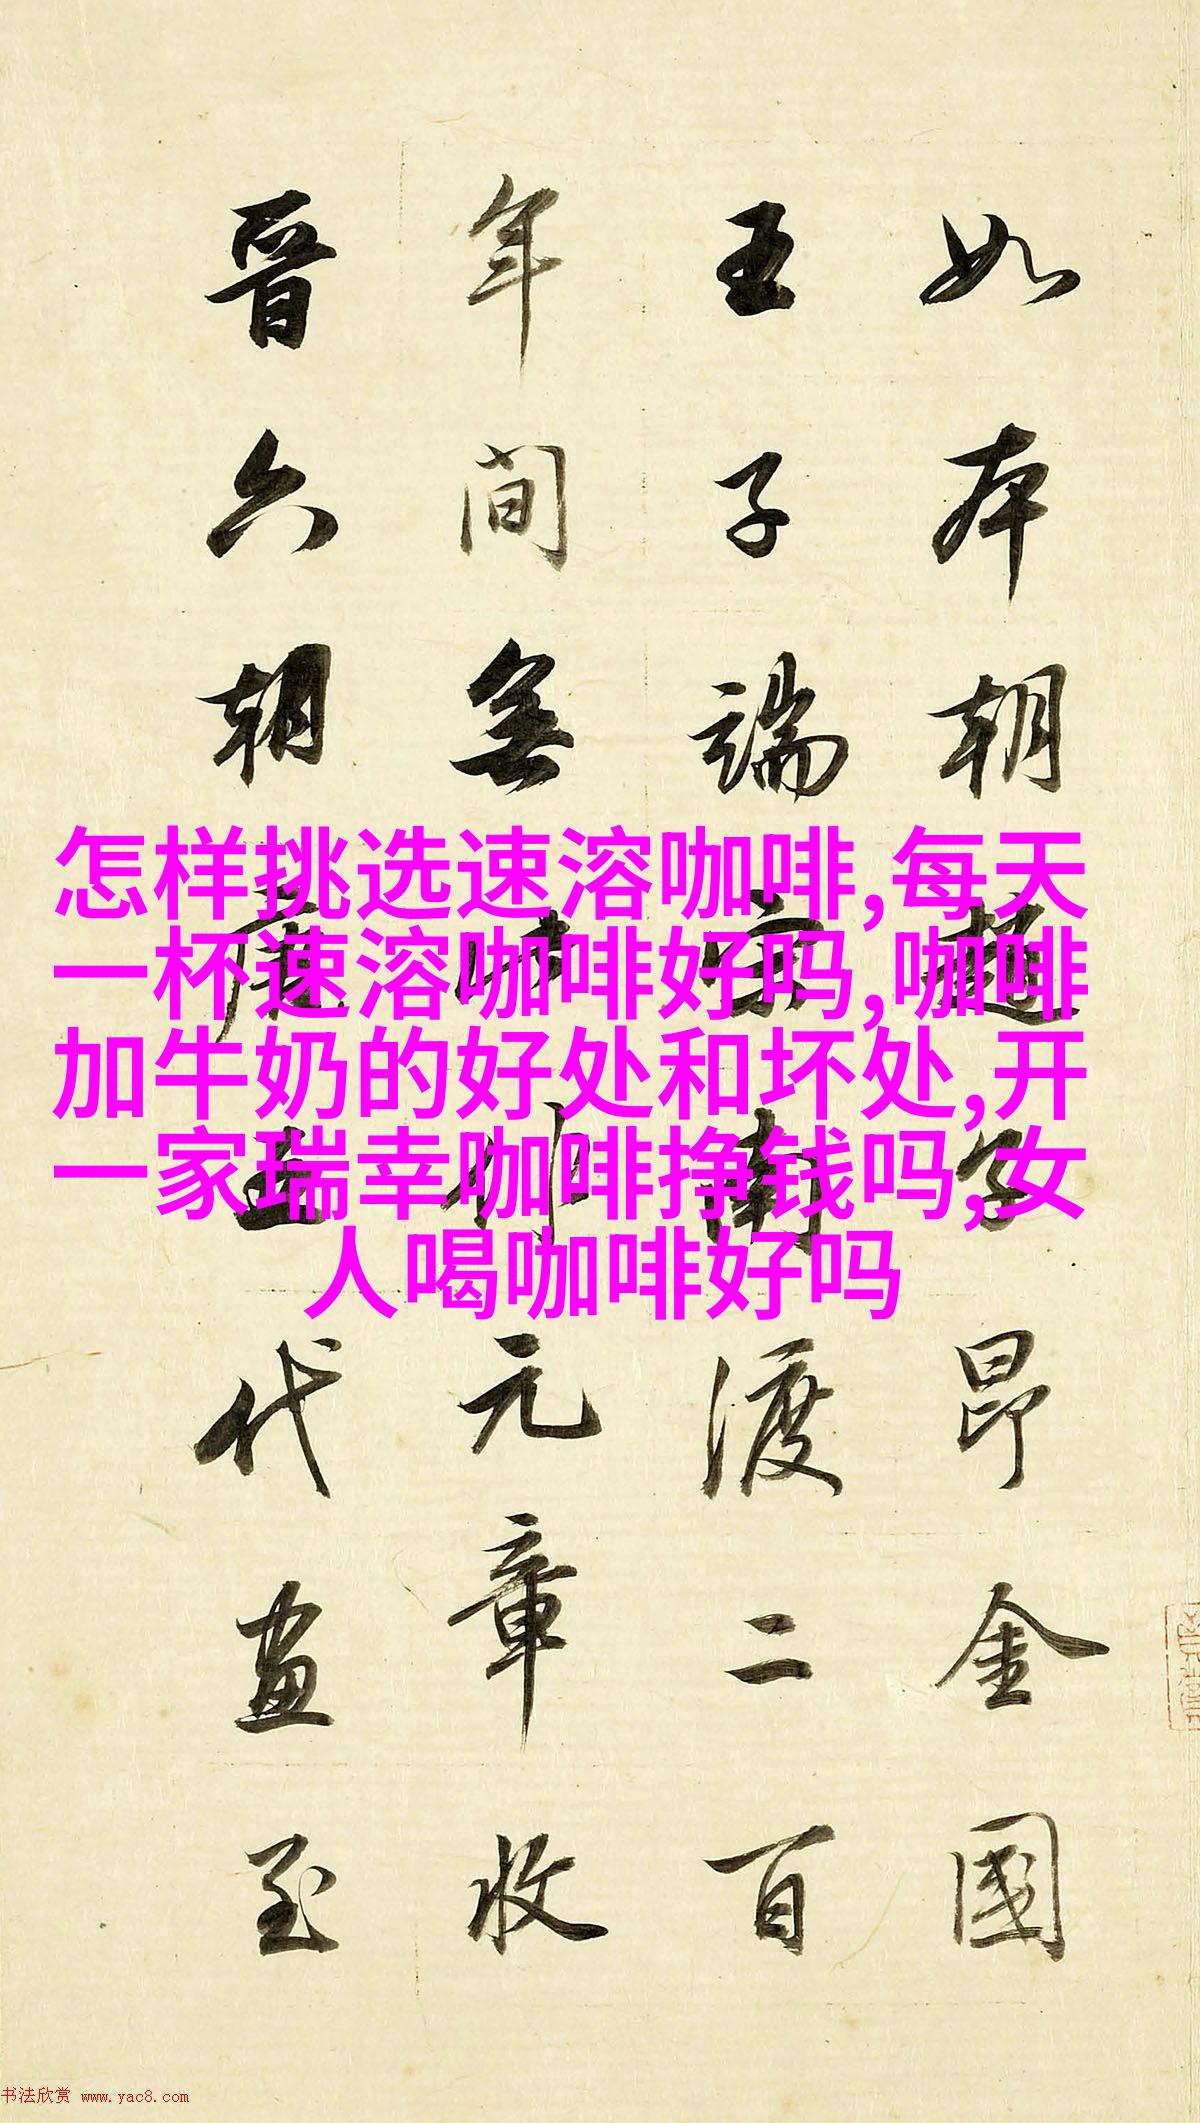 如本朝趙子昂金國
王子端宋南渡二百
年間無此作元章收
晉六朝唐五代畫至
怎样挑选速溶咖啡,每天
一杯速溶咖啡好吗,咖啡
加牛奶的好处和坏处,开
一家瑞幸咖啡挣钱吗,女
人喝咖啡好吗
书法欣赏 www.yac8.com